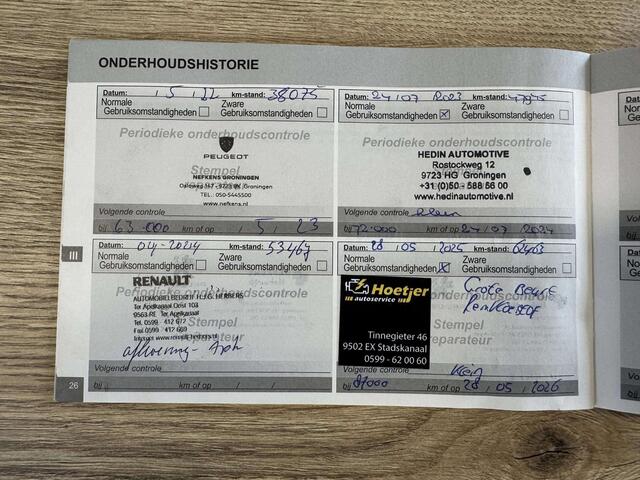 ONDERHOUDSHISTORIE
Datum: / 5 / 22 km-stand: 38075
Normale Zware
Gebruiksomstandigheden Gebruiksomstandigheden
Periodieke onderhoudscontrole
PEUGEOT
Stempel
NEFKENS GRONINGEN
Groningen
TEL.: 050-5445500
www.nefkens.nl
Volgende controle
bij 63.000 km of op / 5 / 23
Datum: 24/07 2023 km-stand:
Normale Zware
Gebruiksomstandigheden Gebruiksomstandigheden
Periodieke onderhoudscontrole
HEDIN AUTOMOTIVE
Rostockweg 12
9723 HG Groningen
+31 (0)50 - 588 56 00
www.hedinautomotive.nl
Volgende controle klein
bij 72.000 km of op 24/07/2024
III
Datum: 04-2024 km-stand: 53467
Normale Zware
Gebruiksomstandigheden Gebruiksomstandigheden
RENAULT
AUTOMOBIELBEDRIJF H.J.G. HEIBERG
Ter Apelkanaal Oost 103
9563 RE Ter Apelkanaal
Tel. 0599 - 412 677
Fax 0599 - 412 669
Stempel
aflevering-
Volgende controle
bij km of op / /
Datum: 28 / 05 / 2025 km-stand: 62463
Normale Zware
Gebruiksomstandigheden Gebruiksomstandigheden
Hoetjer
autoservice
Grote Beurt
Remvloeistof
Tinnegieter 46
9502 EX Stadskanaal
0599 - 62 00 60
Volgende controle Klein
bij 87000 km of op 28 / 05 / 2026
26